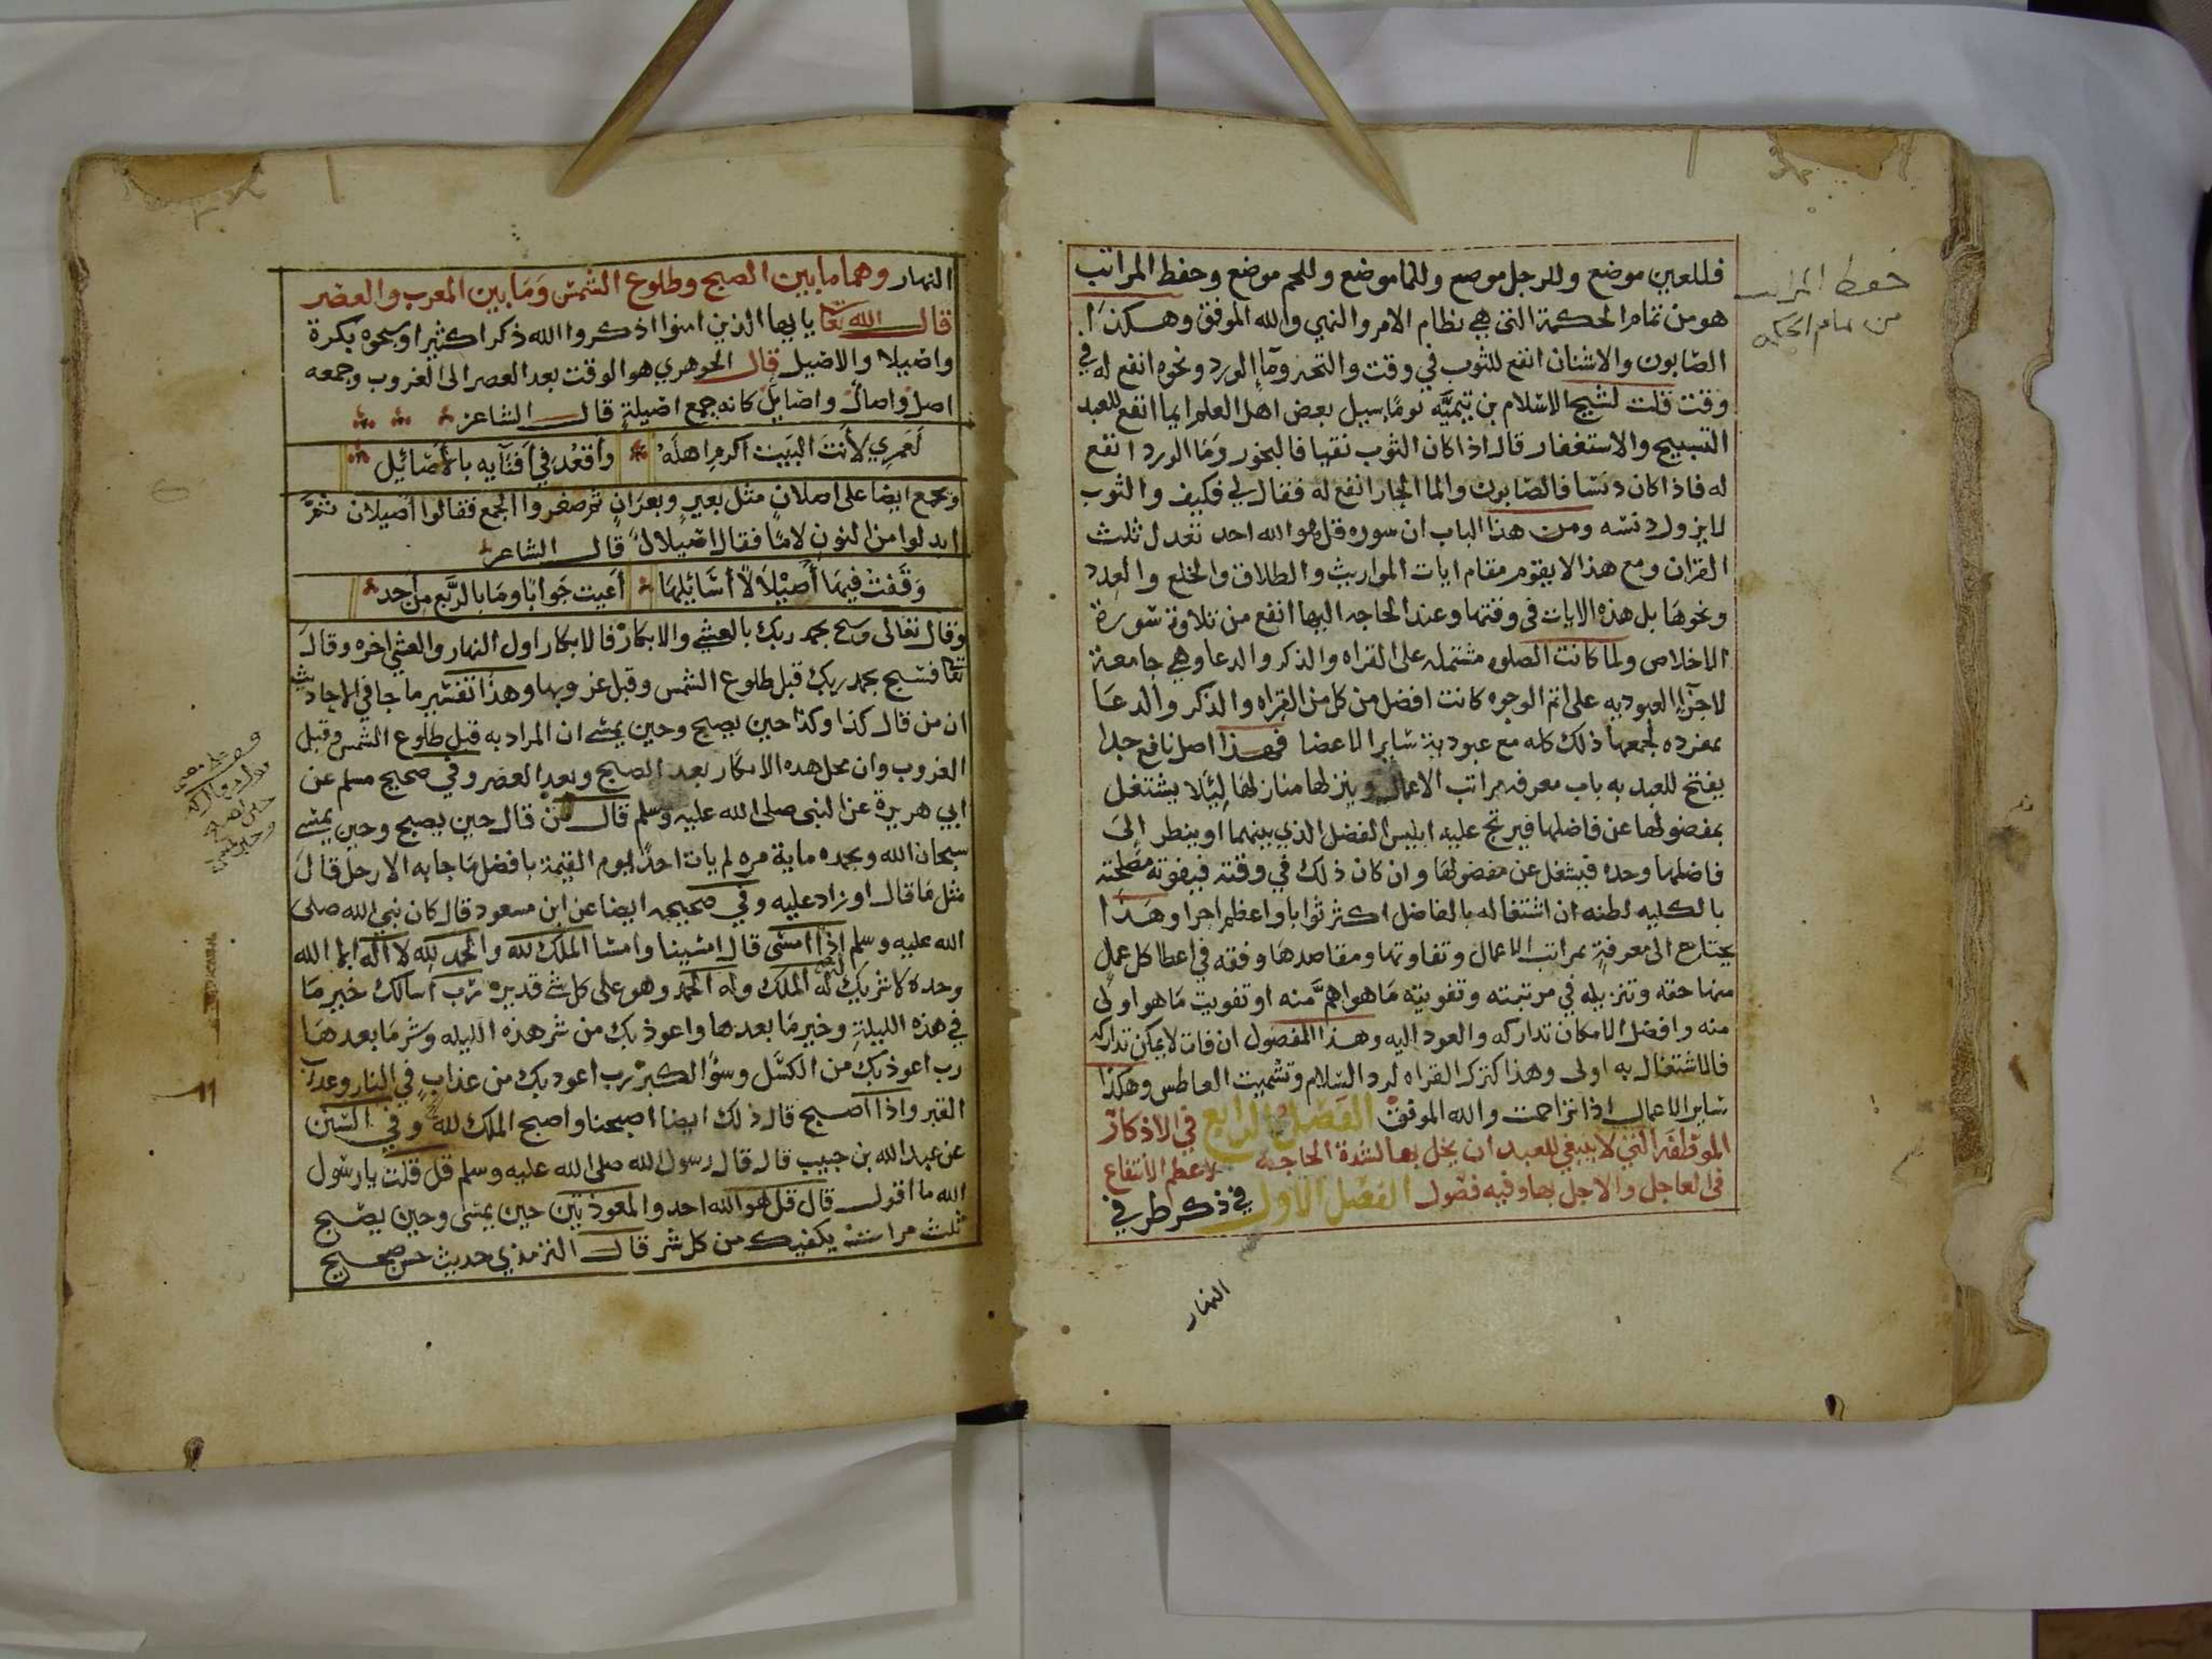 فللعين موضع وللرجل موضع وللما موضع وللحم موضع وحفظ المراتب
هو من تمام الحكمة التي هي نظام الامر والنهي والله الموفق وهكذا
الصابون والاشنان انفع للثوب في وقت والتخر وماء الورد ونحوه انفع له في
وقت قلت لشيخ الاسلام بن تيمية يوما سيل بعض اهل العلم ايما انفع للعبد
التسبيح والاستغفار قال اذا كان الثوب نقيا فالبخور وما الورد انفع
له فاذا كان دنسا فالصابون والما الحار انفع له فقال لي فكيف والثوب
لا يزول دنسه ومن هذا الباب ان سوره قل هو الله احد تعدل ثلث
القران ومع هذا لا يقوم مقام ايات المواريث والطلاق والخلع والعدد
ونحوها بل هذه الايات في وقتها وعند الحاجه اليها انفع من تلاوة سورة
الاخلاص ولما كانت الصلوه مشتمله على القراه والذكر والدعا وهي جامعة
لاجزاء العبوديه على اتم الوجوه كانت افضل من كل من القراه والذكر والدعا
بمفرده لجمعها ذلك كله مع عبودية ساير الاعضا فهذا اصل نافع جدا
يفتح للعبد به باب معرفه مراتب الاعمال وينزلها منازلها ليلا يشتغل
بمفضولها عن فاضلها فيربح عليه ابليس الفضل الذي بينهما او ينظر الى
فاضلها وحده فيشغل عن مفضولها وان كان ذلك في وقته فيفوته مصلحته
بالكليه لظنه ان اشتغاله بالفاضل اكثر ثوابا واعظم اجرا وهذا
يحتاج الى معرفة بمراتب الاعمال وتفاوتها ومقاصدها وفقه في اعطا كل عمل
منها حقه وتنزيله في مرتبته وتفويته ما هو اهم منه او تفويت ما هو اولى
منه وافضل لامكان تداركه والعود اليه وهذا المفضول ان فات لا يمكن تداركه
فالاشتغال به اولى وهذا كترك القراه لرد السلام وتشميت العاطس وهكذا
ساير الاعمال اذا تزاحمت والله الموفق الفصل الرابع في الاذكار
الموظفة التي لا ينبغي للعبد ان يخل بها لشدة الحاجة لاعظم الانتفاع
في العاجل والاجل بها وفيه فصول الفصل الاول في ذكر طرفي
النهار
حفظ المراتب
من تمام الحكمه
النهار وهما ما بين الصبح وطلوع الشمس وما بين المغرب والعصر
قال الله تعا يا ايها الذين امنوا اذكروا الله ذكرا كثيرا وسبحوه بكرة
واصيلا والاصيل قال الجوهري هو الوقت بعد العصر الى الغروب وجمعه
اصل واصال واصايل كانه جمع اصيلة قال الشاعر
لعمري لانت البيت اكرم اهله واقعد في افنايه بالاصايل
ويجمع ايضا على اصلان مثل بعير وبعران ثم صغروا الجمع فقالوا اصيلان ثم
ابدلوا من النون لاما فقال اصيلال قال الشاعر
وقفت فيها اصيلالا اسايلها اعيت جوابا وما بالربع من احد
وقال تعالى وسبح بحمد ربك بالعشي والابكار فالابكار اول النهار والعشي اخره وقال
تعا فسبح بحمد ربك قبل طلوع الشمس وقبل غروبها وهذا تفسير ما جا في الاحاديث
ان من قال كذا وكذا حين يصبح وحين يمسي ان المراد به قبل طلوع الشمس وقبل
الغروب وان محل هذه الاذكار بعد الصبح وبعد العصر وفي صحيح مسلم عن
ابي هريرة عن النبي صلى الله عليه وسلم قال من قال حين يصبح وحين يمسي
سبحان الله وبحمده ماية مره لم يات احد يوم القيمة بافضل ما جا به الا رجل قال
مثل ما قال او زاد عليه وفي صحيحه ايضا عن ابن مسعود قال كان نبي الله صلى
الله عليه وسلم اذا امسى قال امسينا وامسا الملك لله والحمد لله لا اله الا الله
وحده لا شريك له له الملك وله الحمد وهو على كل شي قدير رب اسالك خير ما
في هذه الليلة وخير ما بعدها واعوذ بك من شر هذه الليله وشر ما بعدها
رب اعوذ بك من الكسل وسؤ الكبر رب اعوذ بك من عذاب في النار وعذاب
القبر واذا اصبح قال ذلك ايضا اصبحنا واصبح الملك لله وفي السنن
عن عبد الله بن حبيب قال قال رسول الله صلى الله عليه وسلم قل قلت يا رسول
الله ما اقول قال قل هو الله احد والمعوذتين حين يمسي وحين يصبح
ثلث مرات يكفيك من كل شر قال الترمذي حديث حسن صحيح